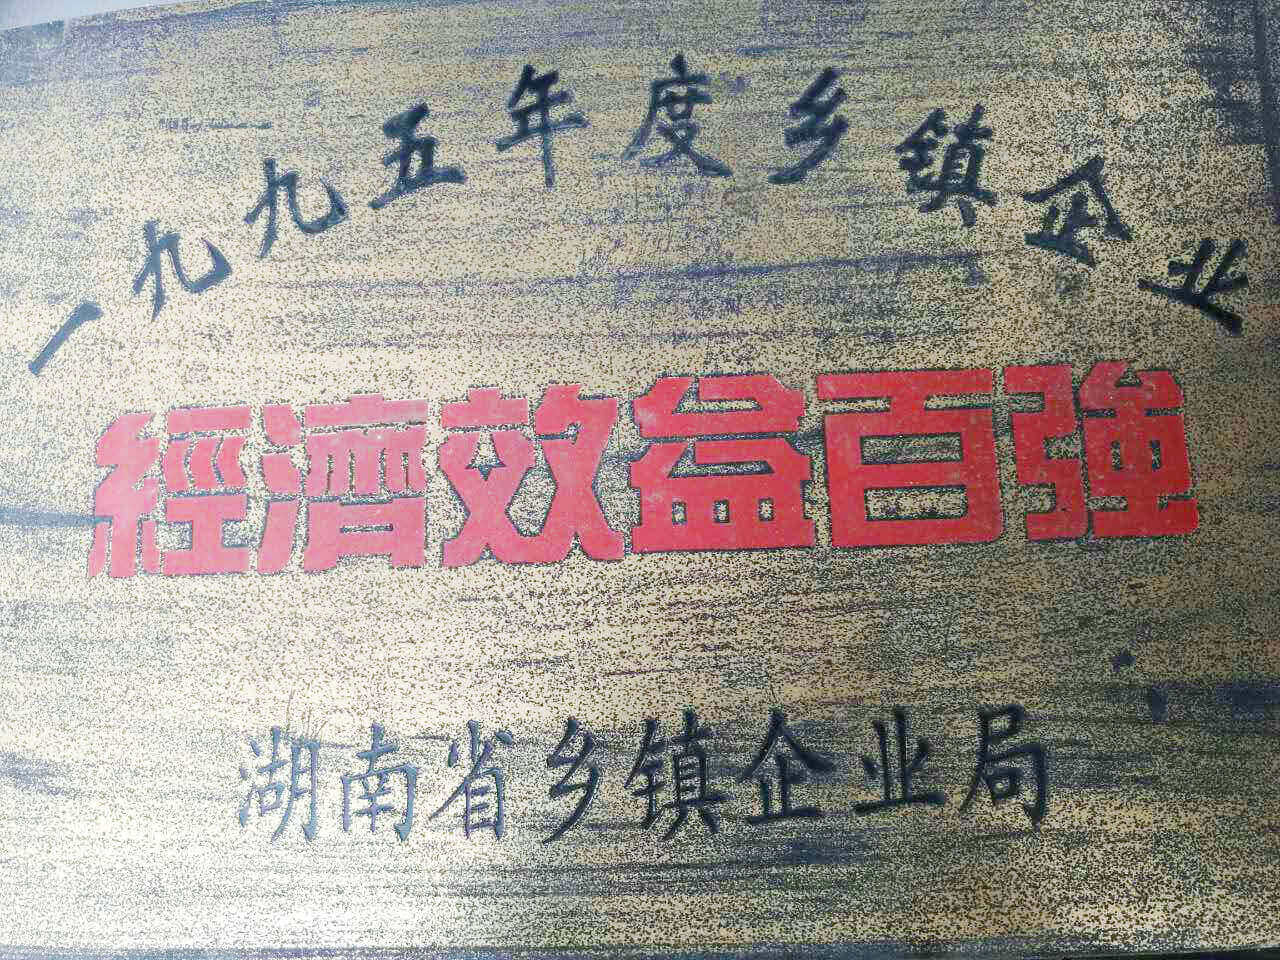 一九九五年度乡镇企业
經濟效益百強
湖南省乡镇企业局